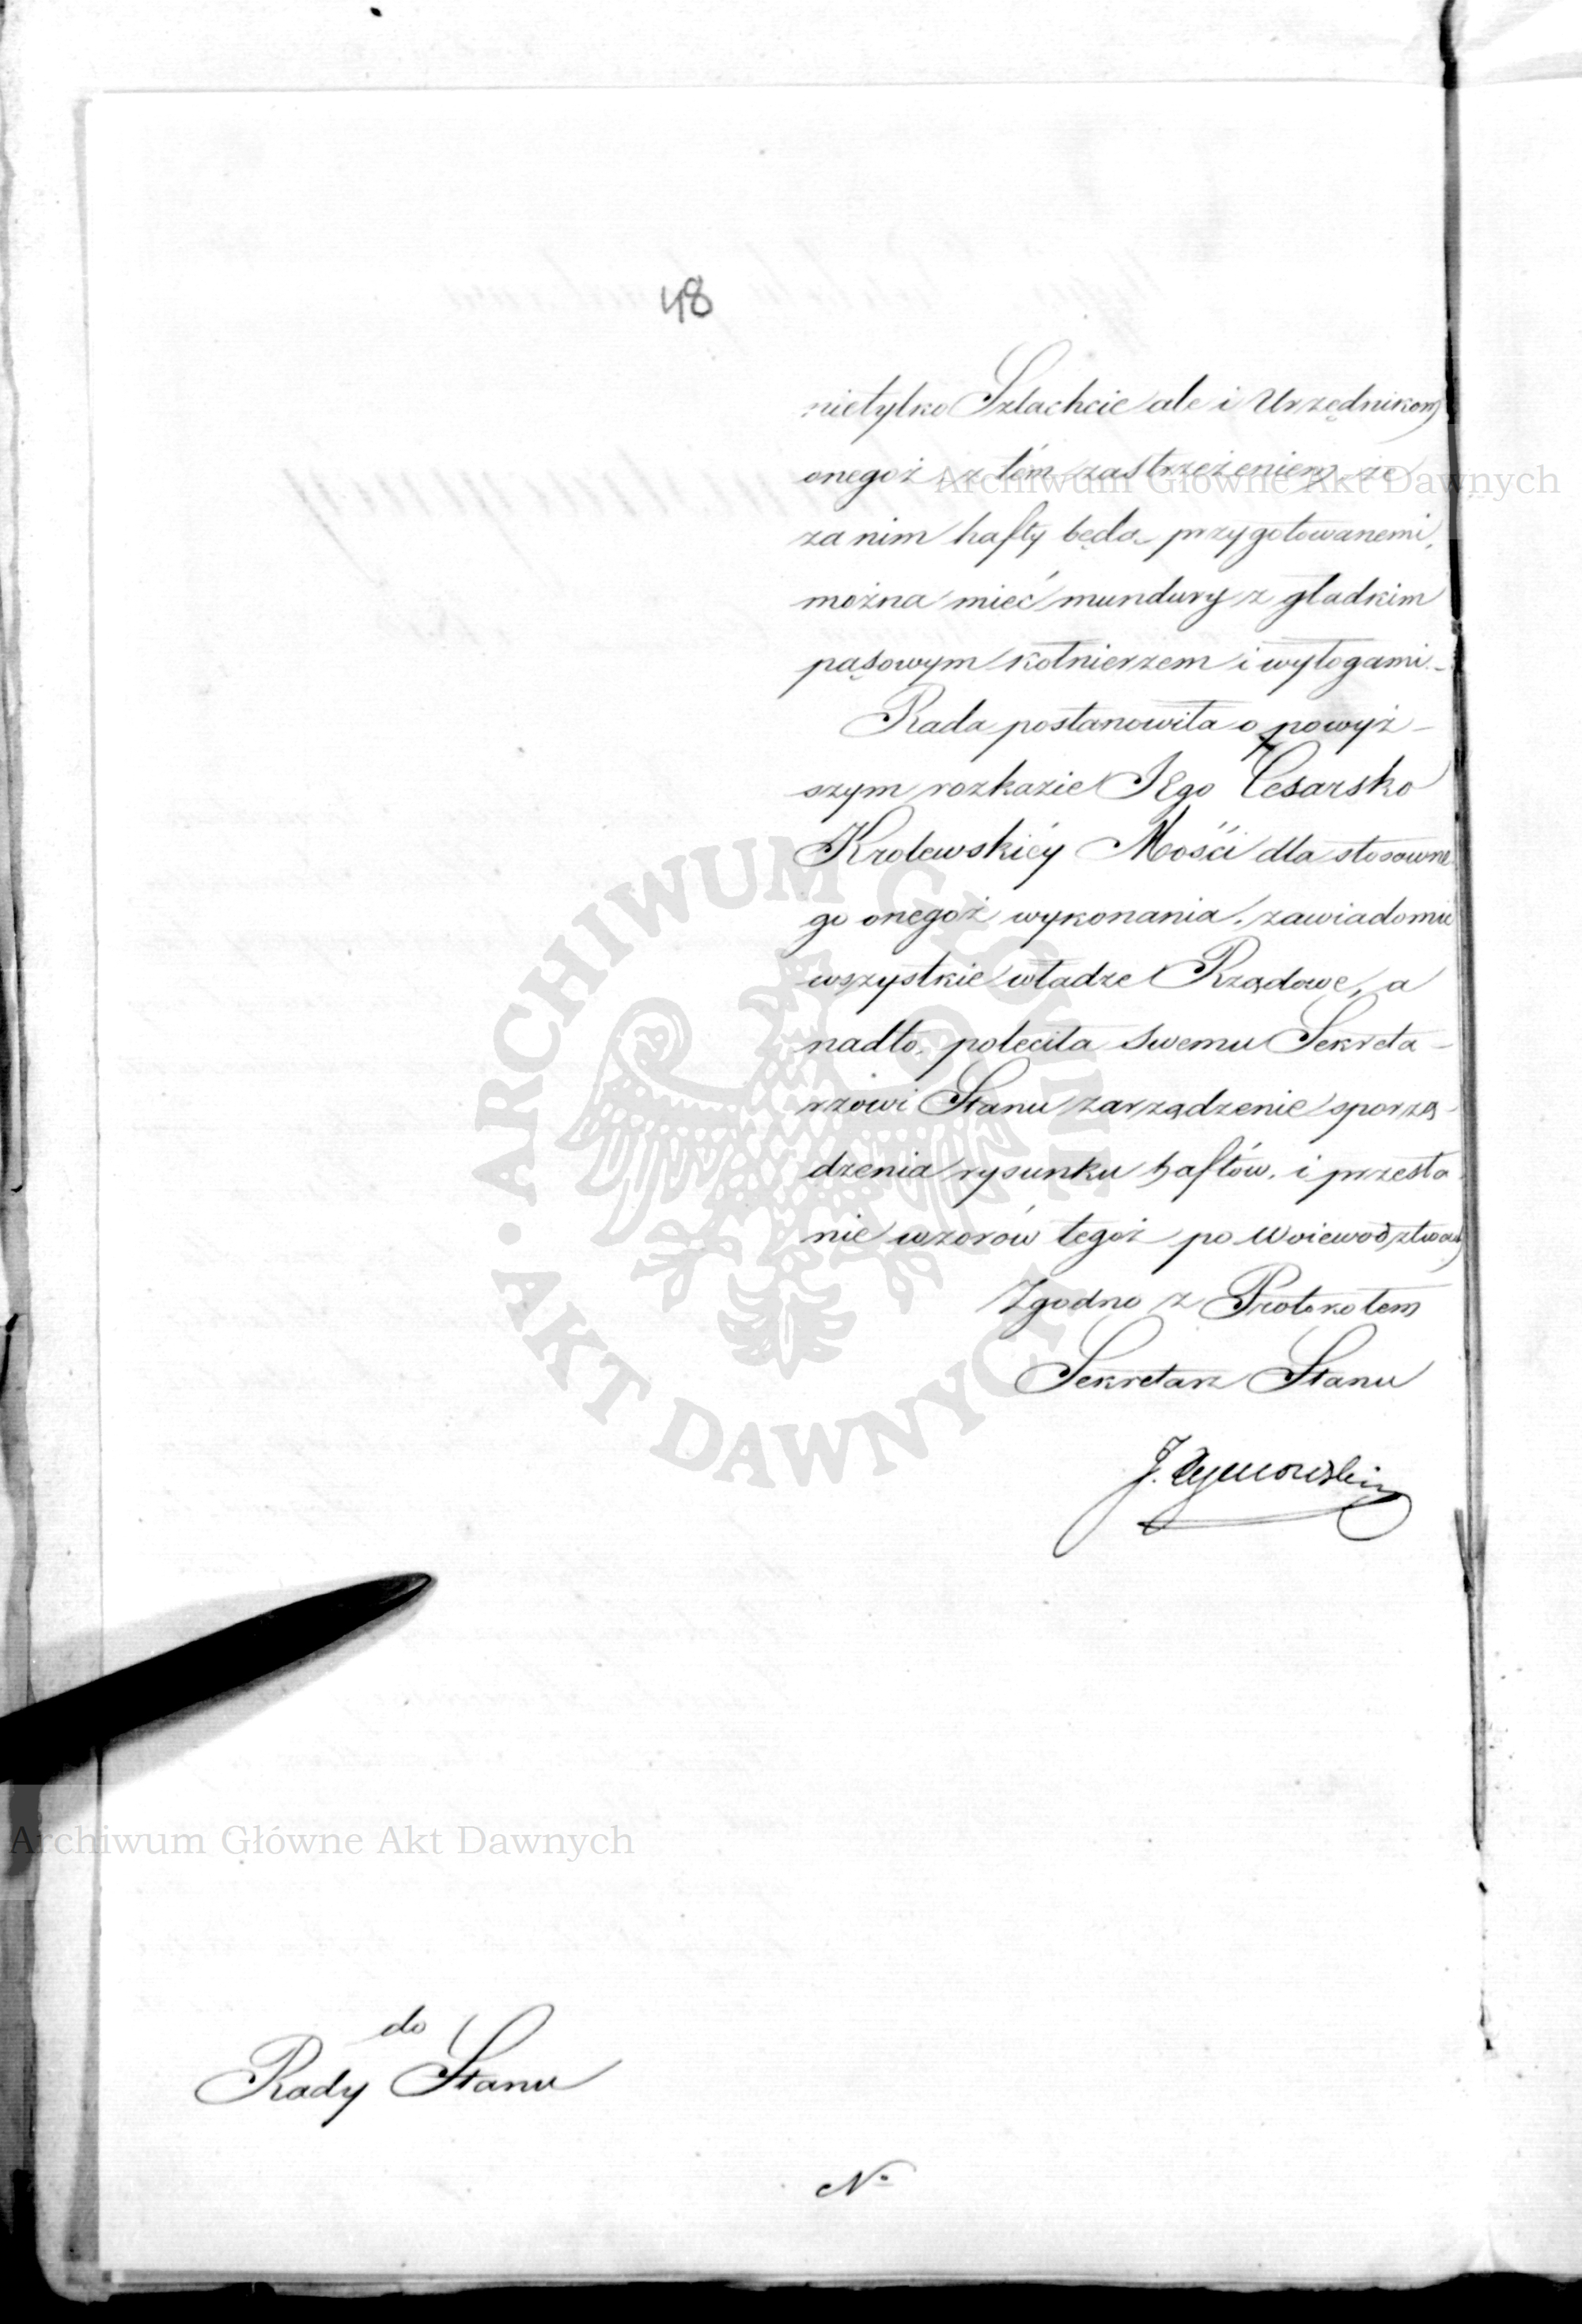 48
nietylko Szlachcie ale i Urzędnikom
onegoż, z tém zastrzeżeniem, że
za nim hafty będą przygotowanemi,
można mieć mundury z gładkim
pąsowym kołnierzem i wyłogami.
Rada postanowiła o powyż-
szym rozkazie Jego Cesarsko
Krolewskiéy Mości dla stosowne
go onegoż wykonania, zawiadomić
wszystkie władze Rządowe, a
nadto, poleciła swemu Sekreta-
rzowi Stanu zarządzenie sporzą-
dzenia rysunku haftów, i przesła
nie wzorów tegoż po Woiewództwach
Zgodno z Protokołem
Sekretarz Stanu
J. Tymowski
do
Rady Stanu
No
Archiwum Główne Akt Dawnych
Archiwum Główne Akt Dawnych
ARCHIWUM GŁÓWNE
AKT DAWNYCH